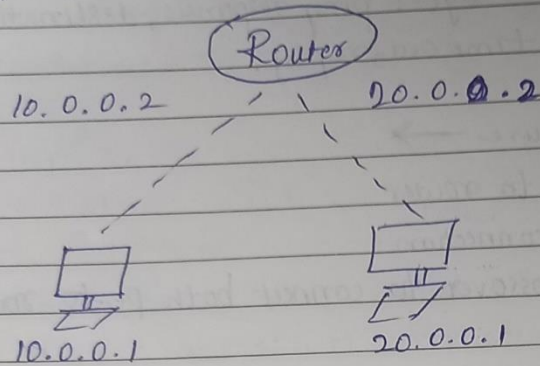 Router
10.0.0.2
20.0.0.2
10.0.0.1
20.0.0.1